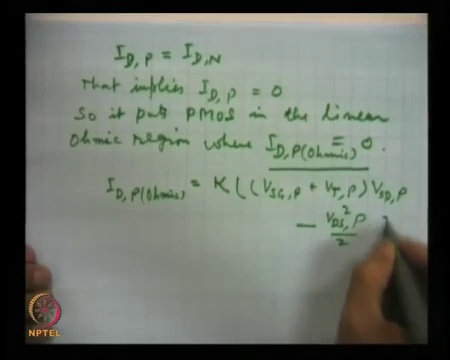 I_D,P = I_D,N
That implies I_D,P = 0
So it puts PMOS in the linear
Ohmic region where I_D,P(Ohmic) = 0.
I_D,P(Ohmic) = K ( (V_SG,P + V_T,P) V_SD,P
- V_DS^2,P / 2
NPTEL